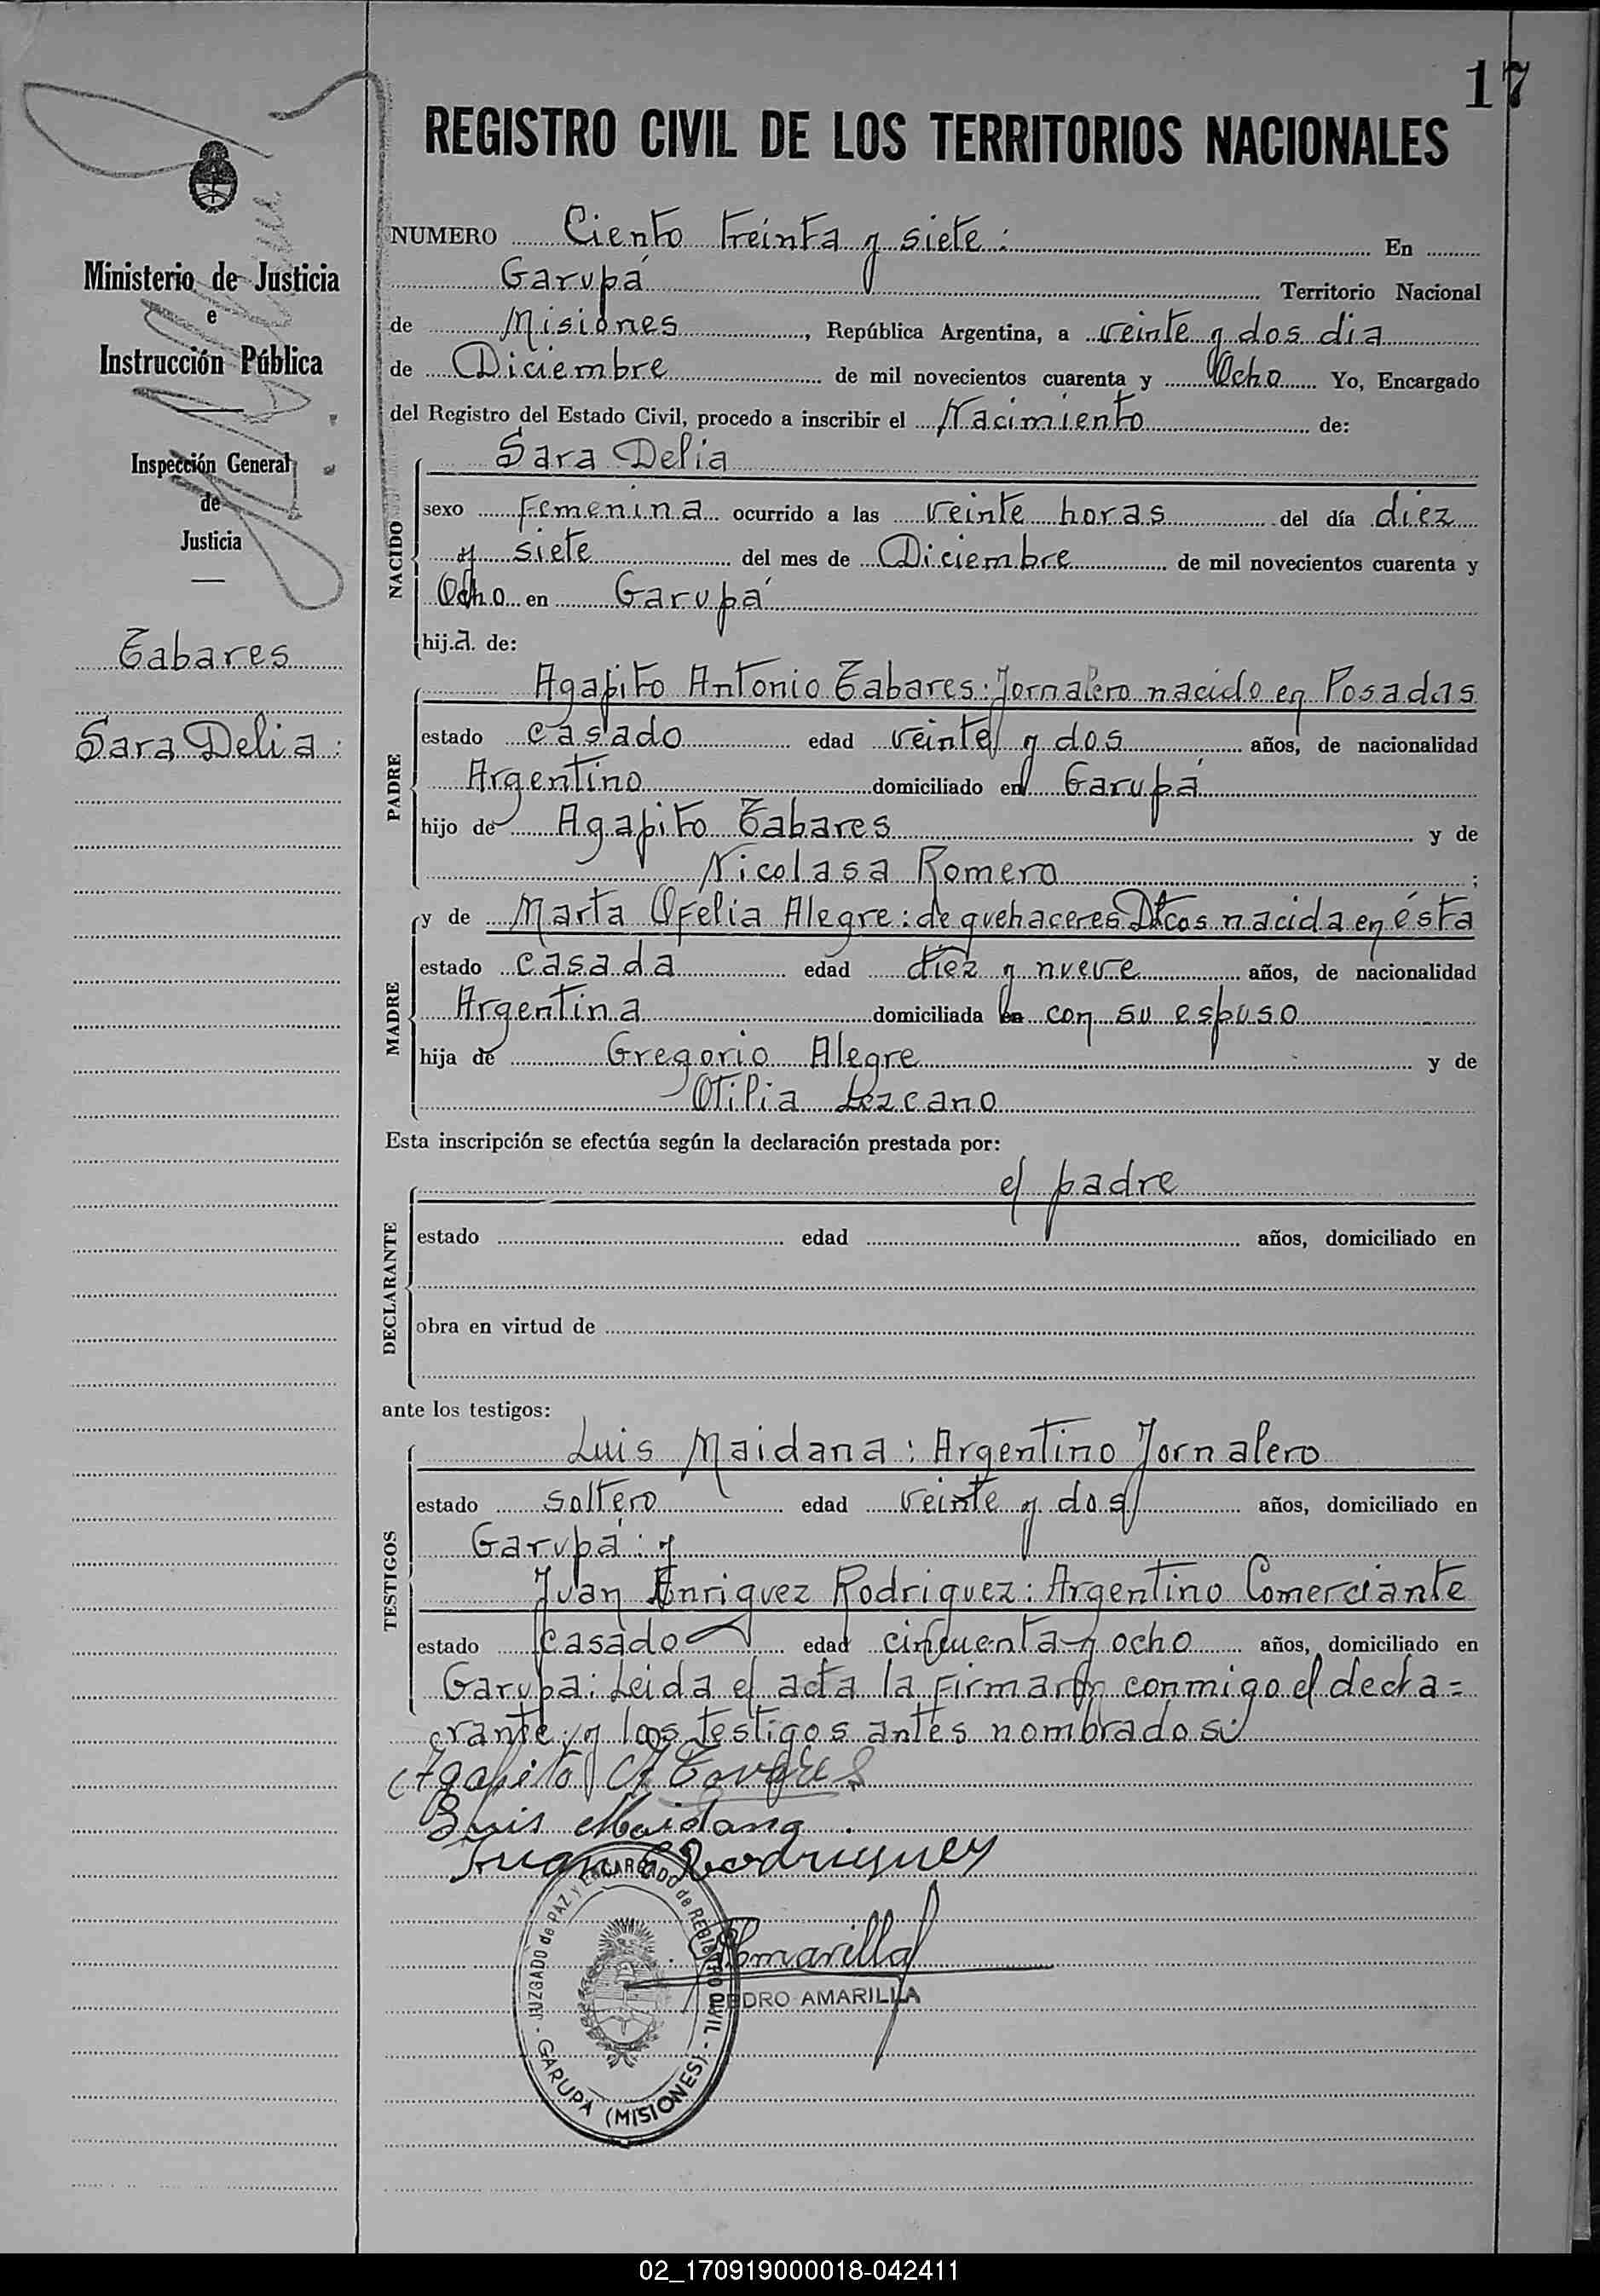 17
REGISTRO CIVIL DE LOS TERRITORIOS NACIONALES
Ministerio de Justicia
e
Instrucción Pública
Inspección General
de
Justicia
Tabares
Sara Delia :
NUMERO Ciento treinta y siete : En
Garupá Territorio Nacional
de Misiones, República Argentina, a veinte y dos dia
de Diciembre de mil novecientos cuarenta y Ocho Yo, Encargado
del Registro del Estado Civil, procedo a inscribir el Nacimiento de:
NACIDO
Sara Delia
sexo Femenina ocurrido a las veinte horas del día diez
y siete del mes de Diciembre de mil novecientos cuarenta y
Ocho en Garupá
hija de:
PADRE
Agapito Antonio Tabares: Jornalero nacido en Posadas
estado casado edad veinte y dos años, de nacionalidad
Argentino domiciliado en Garupá
hijo de Agapito Tabares y de
Nicolasa Romero ;
MADRE
y de Marta Ofelia Alegre: de quehaceres Dtcos nacida en ésta
estado casada edad diez y nueve años, de nacionalidad
Argentina domiciliada en con su espuso
hija de Gregorio Alegre y de
Otilia Lezcano
Esta inscripción se efectúa según la declaración prestada por:
DECLARANTE
el padre
estado edad años, domiciliado en
obra en virtud de
ante los testigos:
TESTIGOS
Luis Maidana : Argentino Jornalero
estado soltero edad veinte y dos años, domiciliado en
Garupá : y
Juan Enriquez Rodriguez: Argentino Comerciante
estado casado edad cincuenta y ocho años, domiciliado en
Garupa: Leida el acta la firmaron conmigo el decla=
rante y los testigos antes nombrados:
Agapito A Tavares
Luis Maidana.
Juan E Rodriguez
JUZGADO de PAZ y ENCARGADO de REGISTRO CIVIL - GARUPA (MISIONES) -
PAmarilla
PEDRO AMARILLA
02_170919000018-042411